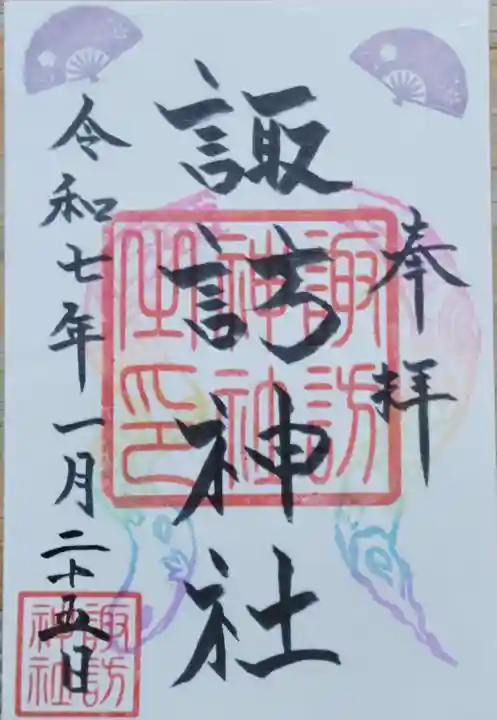 奉拝
諏訪神社
令和七年一月二十五日
諏訪
神社
之印
諏訪
神社